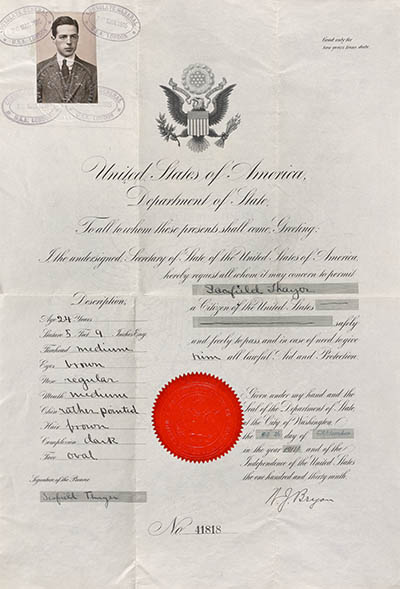 CONSULATE GENERAL
U.S.A. LONDON.
CONSULATE GENERAL
U.S.A. LONDON
Good only for
two years from date.
United States of America,
Department of State,
To all to whom these presents shall come, Greeting:
I the undersigned Secretary of State of the United States of America,
hereby request all whom it may concern to permit
Scofield Thayer
a Citizen of the United States
safely
and freely to pass and in case of need to give
him all lawful Aid and Protection.
Description,
Age 24 Years
Stature 5 Feet 9 Inches Eng.
Forehead medium
Eyes brown
Nose regular
Mouth medium
Chin rather pointed
Hair brown
Complexion dark
Face oval
Signature of the Bearer
Scofield Thayer
Given under my hand and the
Seal of the Department of State,
at the City of Washington,
the day of
in the year 1914 and of the
Independence of the United States
the one hundred and thirty ninth.
W. J. Bryan
No 41818